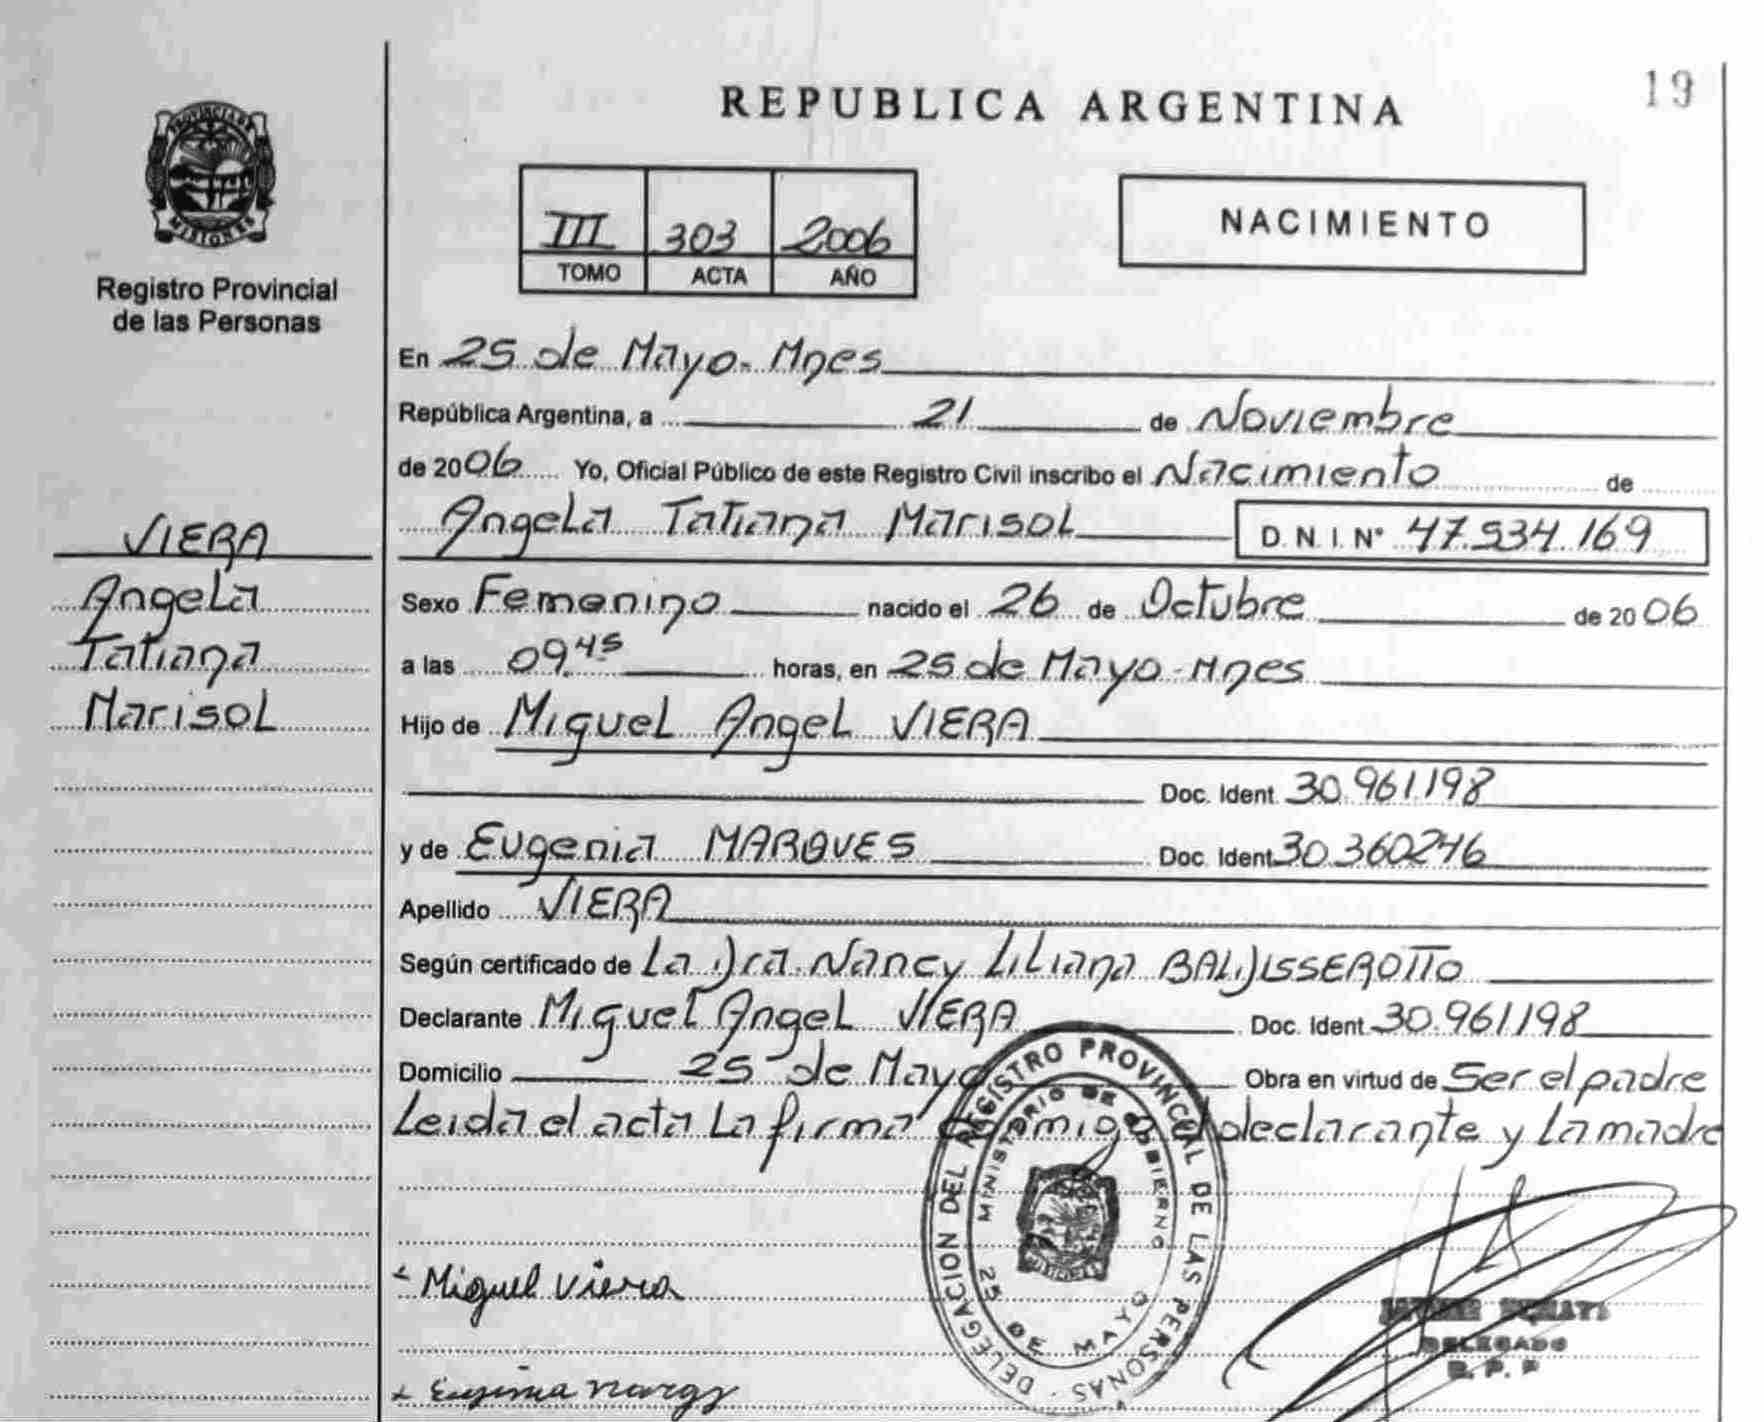 19
REPUBLICA ARGENTINA
PROVINCIA DE
MISIONES
Registro Provincial
de las Personas
III 303 2006
TOMO ACTA AÑO
NACIMIENTO
En 25 de Mayo-Mnes
República Argentina, a 21 de Noviembre
de 2006 Yo, Oficial Público de este Registro Civil inscribo el Nacimiento de
Angela Tatiana Marisol D. N. I. N° 47.534.169
VIERA
Angela
Tatiana
Marisol
Sexo Femenino nacido el 26 de Octubre de 2006
a las 09.45 horas, en 25 de Mayo-Mnes
Hijo de Miguel Angel VIERA
Doc. Ident. 30.961198
y de Eugenia MARQUES Doc. Ident. 30.360246
Apellido VIERA
Según certificado de La Dra. Nancy Liliana BALDISSEROTTO
Declarante Miguel Angel VIERA Doc. Ident. 30.961198
Domicilio 25 de Mayo Obra en virtud de Ser el padre
Leida el acta La firma conmigo el declarante y La madre
DELEGACION DEL REGISTRO PROVINCIAL DE LAS PERSONAS
MINISTERIO DE GOBIERNO
25 DE MAYO
Miguel Viera
DELEGADO
R. P. P